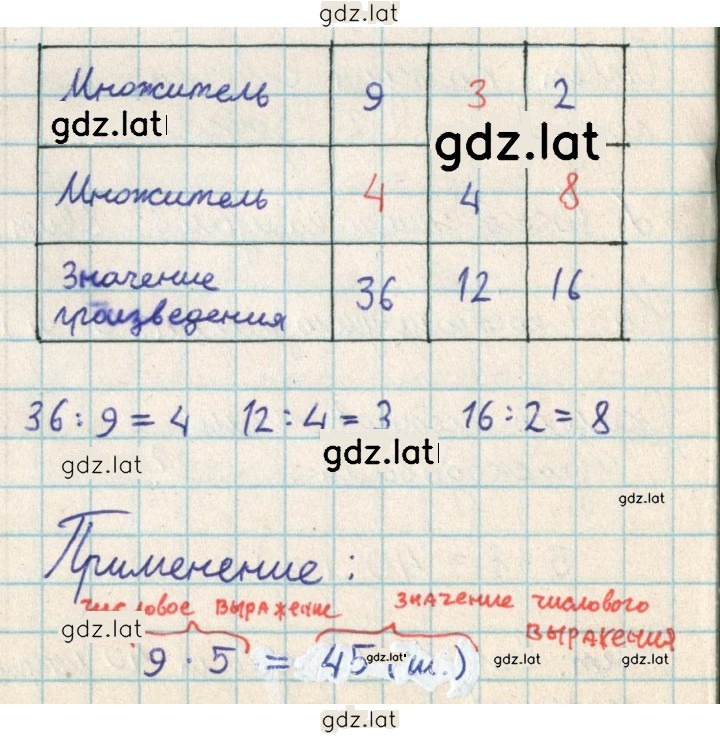 gdz.lat
Множитель 9 3 2
gdz.lat
gdz.lat
Множитель 4 4 8
Значение 36 12 16
произведения
36 : 9 = 4 12 : 4 = 3 16 : 2 = 8
gdz.lat
gdz.lat
gdz.lat
Применение :
числовое выражение значение числового
gdz.lat
выражения
9 · 5 = 45 (ш.)
gdz.lat
gdz.lat
gdz.lat
gdz.lat